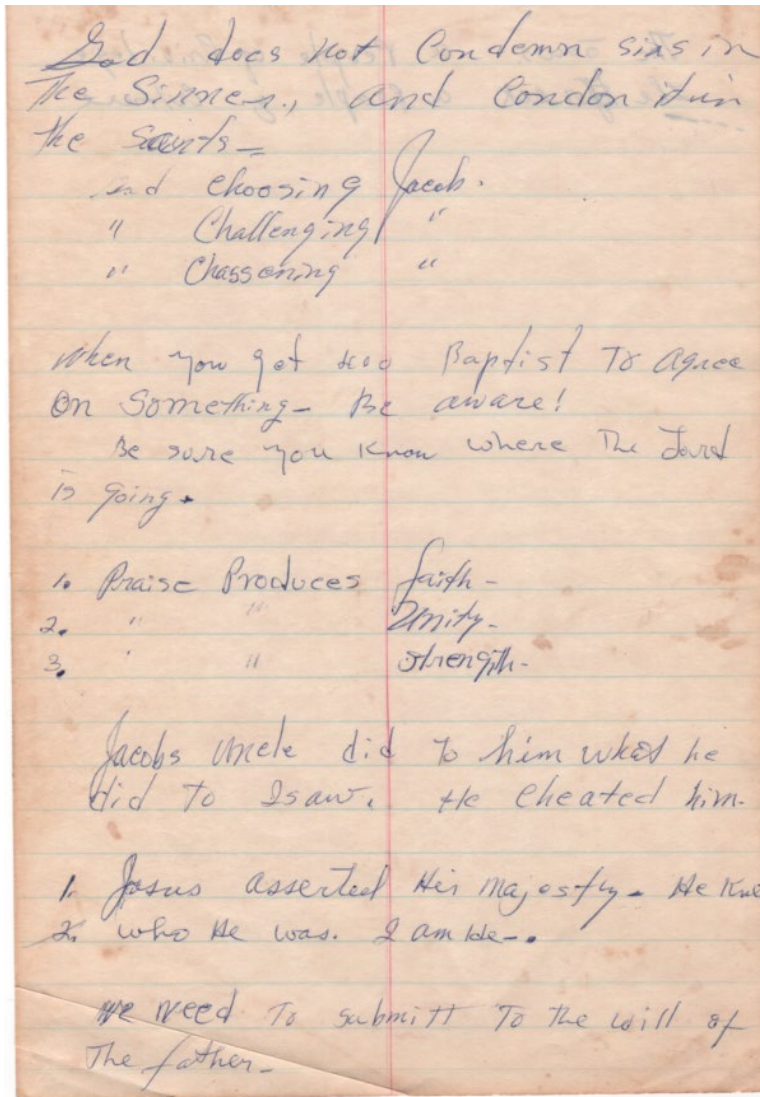 God does not Condemn sins in
The Sinner., and Condon it in
the saints -
God Choosing Jacob.
" Challenging "
" Chassening "
When you get 200 Baptist To Agree
on Something - Be aware!
Be sure you Know where The Lord
is going.
1. Praise Produces faith -
2. " " Unity -
3. " " Strength -
Jacobs uncle did To him what he
did To Isaw. He Cheated him.
1. Jesus asserted His majesty - He Kne
2. who He was. I am He -.
we need To submitt To The will of
The father -